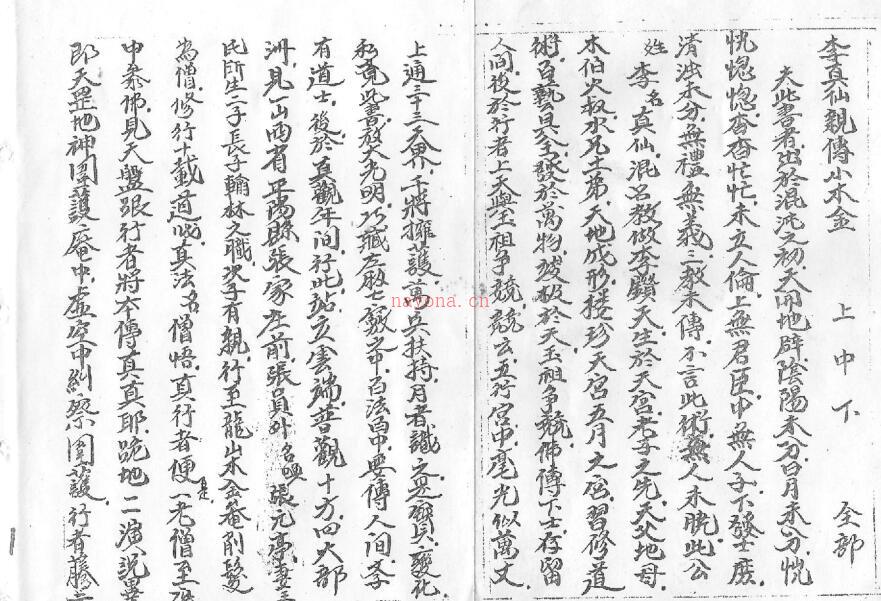 李真仙親傳小木金 上中下 全部
夫此書者出於混沌之初天開地辟陰陽未分日月未分恍
恍惚惚杳杳忙忙未立人倫上無君臣中無人子下發士庶
清浊未分無禮無義三教未傳不言此術無人未晓此公
姓李名真仙混名教做李顯天生於天宮老子之先天父地母
木伯火叔水兄土弟天地成形 天宮五月之 習修道
術百藝具全發於萬物 於天玉祖争競佛傳下士存留
人間後於行者上天與玉祖争競競云五行宮中毫光似萬丈
上通三十三天界千將擁護萬兵扶持月者識之是寶變化
私 此書放大光明巧藏在啟士 中百法西中要傳人间李
有道士後於真觀年间行此站立雲端普觀十方四大部
洲見一山西省平陽縣張家庄前張員外名喚張元亭妻
氏所生二子長子翰林之職次子有親行至龍山木金菴削髮
為僧修行十載道此真法名僧悟真行者便一老僧至
中奉佛見天盤跟行者將本傳真真耶跪地二演説
即天罡地神圍護庵中虚空中糾察圍護行者
nayona.cn